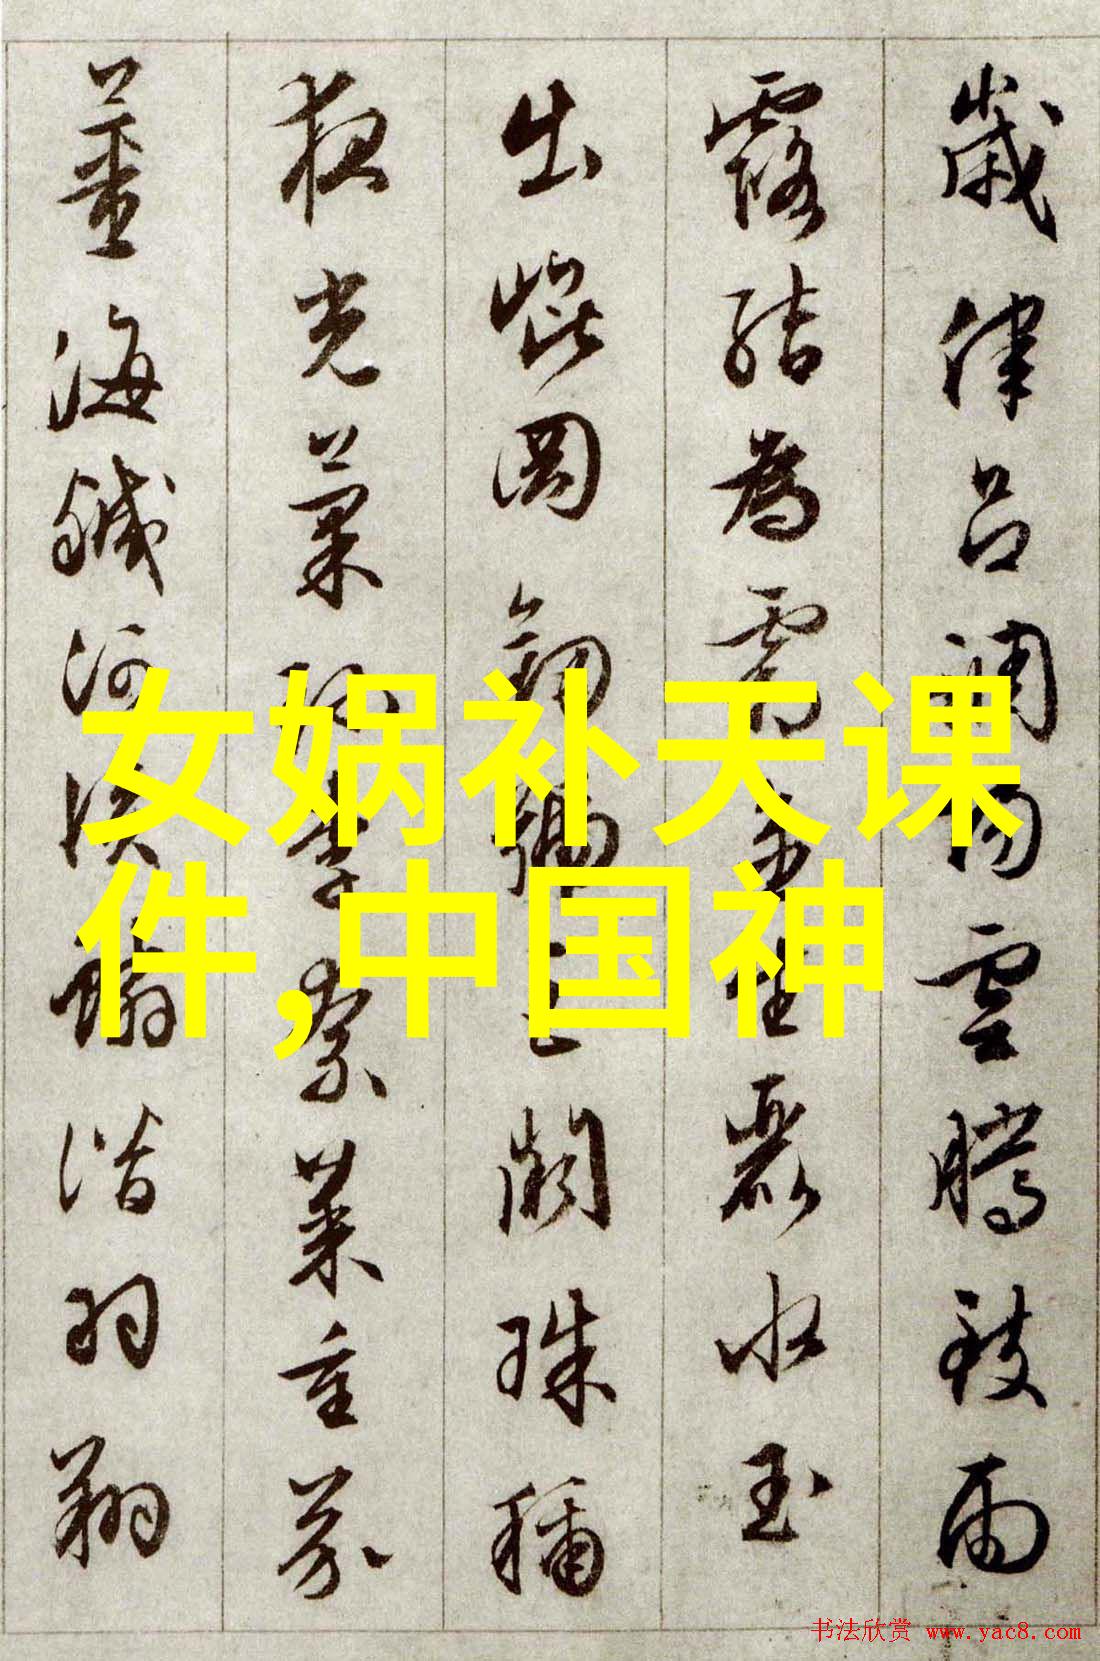 歲律呂調陽雲騰致雨
露結為霜金生麗水玉
出崐岡劒號巨闕珠稱
夜光菓珍李柰菜重芥
薑海鹹河淡鱗潛羽翔
女娲补天课
件,中国神
书法欣赏 www.yac8.com